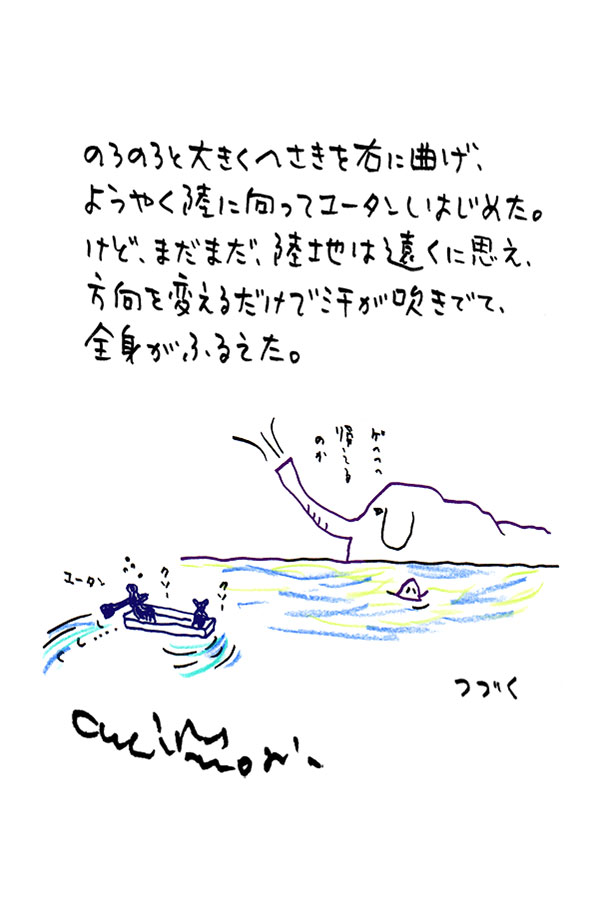 のろのろと大きくへさきを右に曲げ、
ようやく陸に向ってユータンしはじめた。
けど、まだまだ、陸地は遠くに思え、
方向を変えるだけで汗が吹きでて、
全身がふるえた。
ゲヘヘヘ
帰えてる
のか
ユータン
クソ〜
クソ〜
つづく